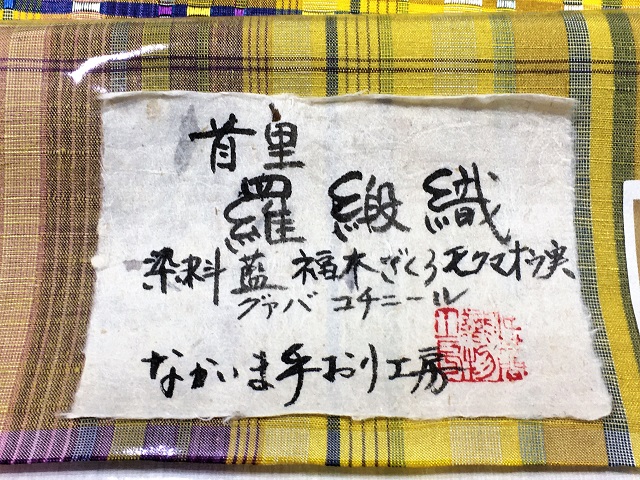 首里
羅緞織
染料 藍 福木 ざくろ モクマオウ実
グァバ コチニール
なかいま手おり工房